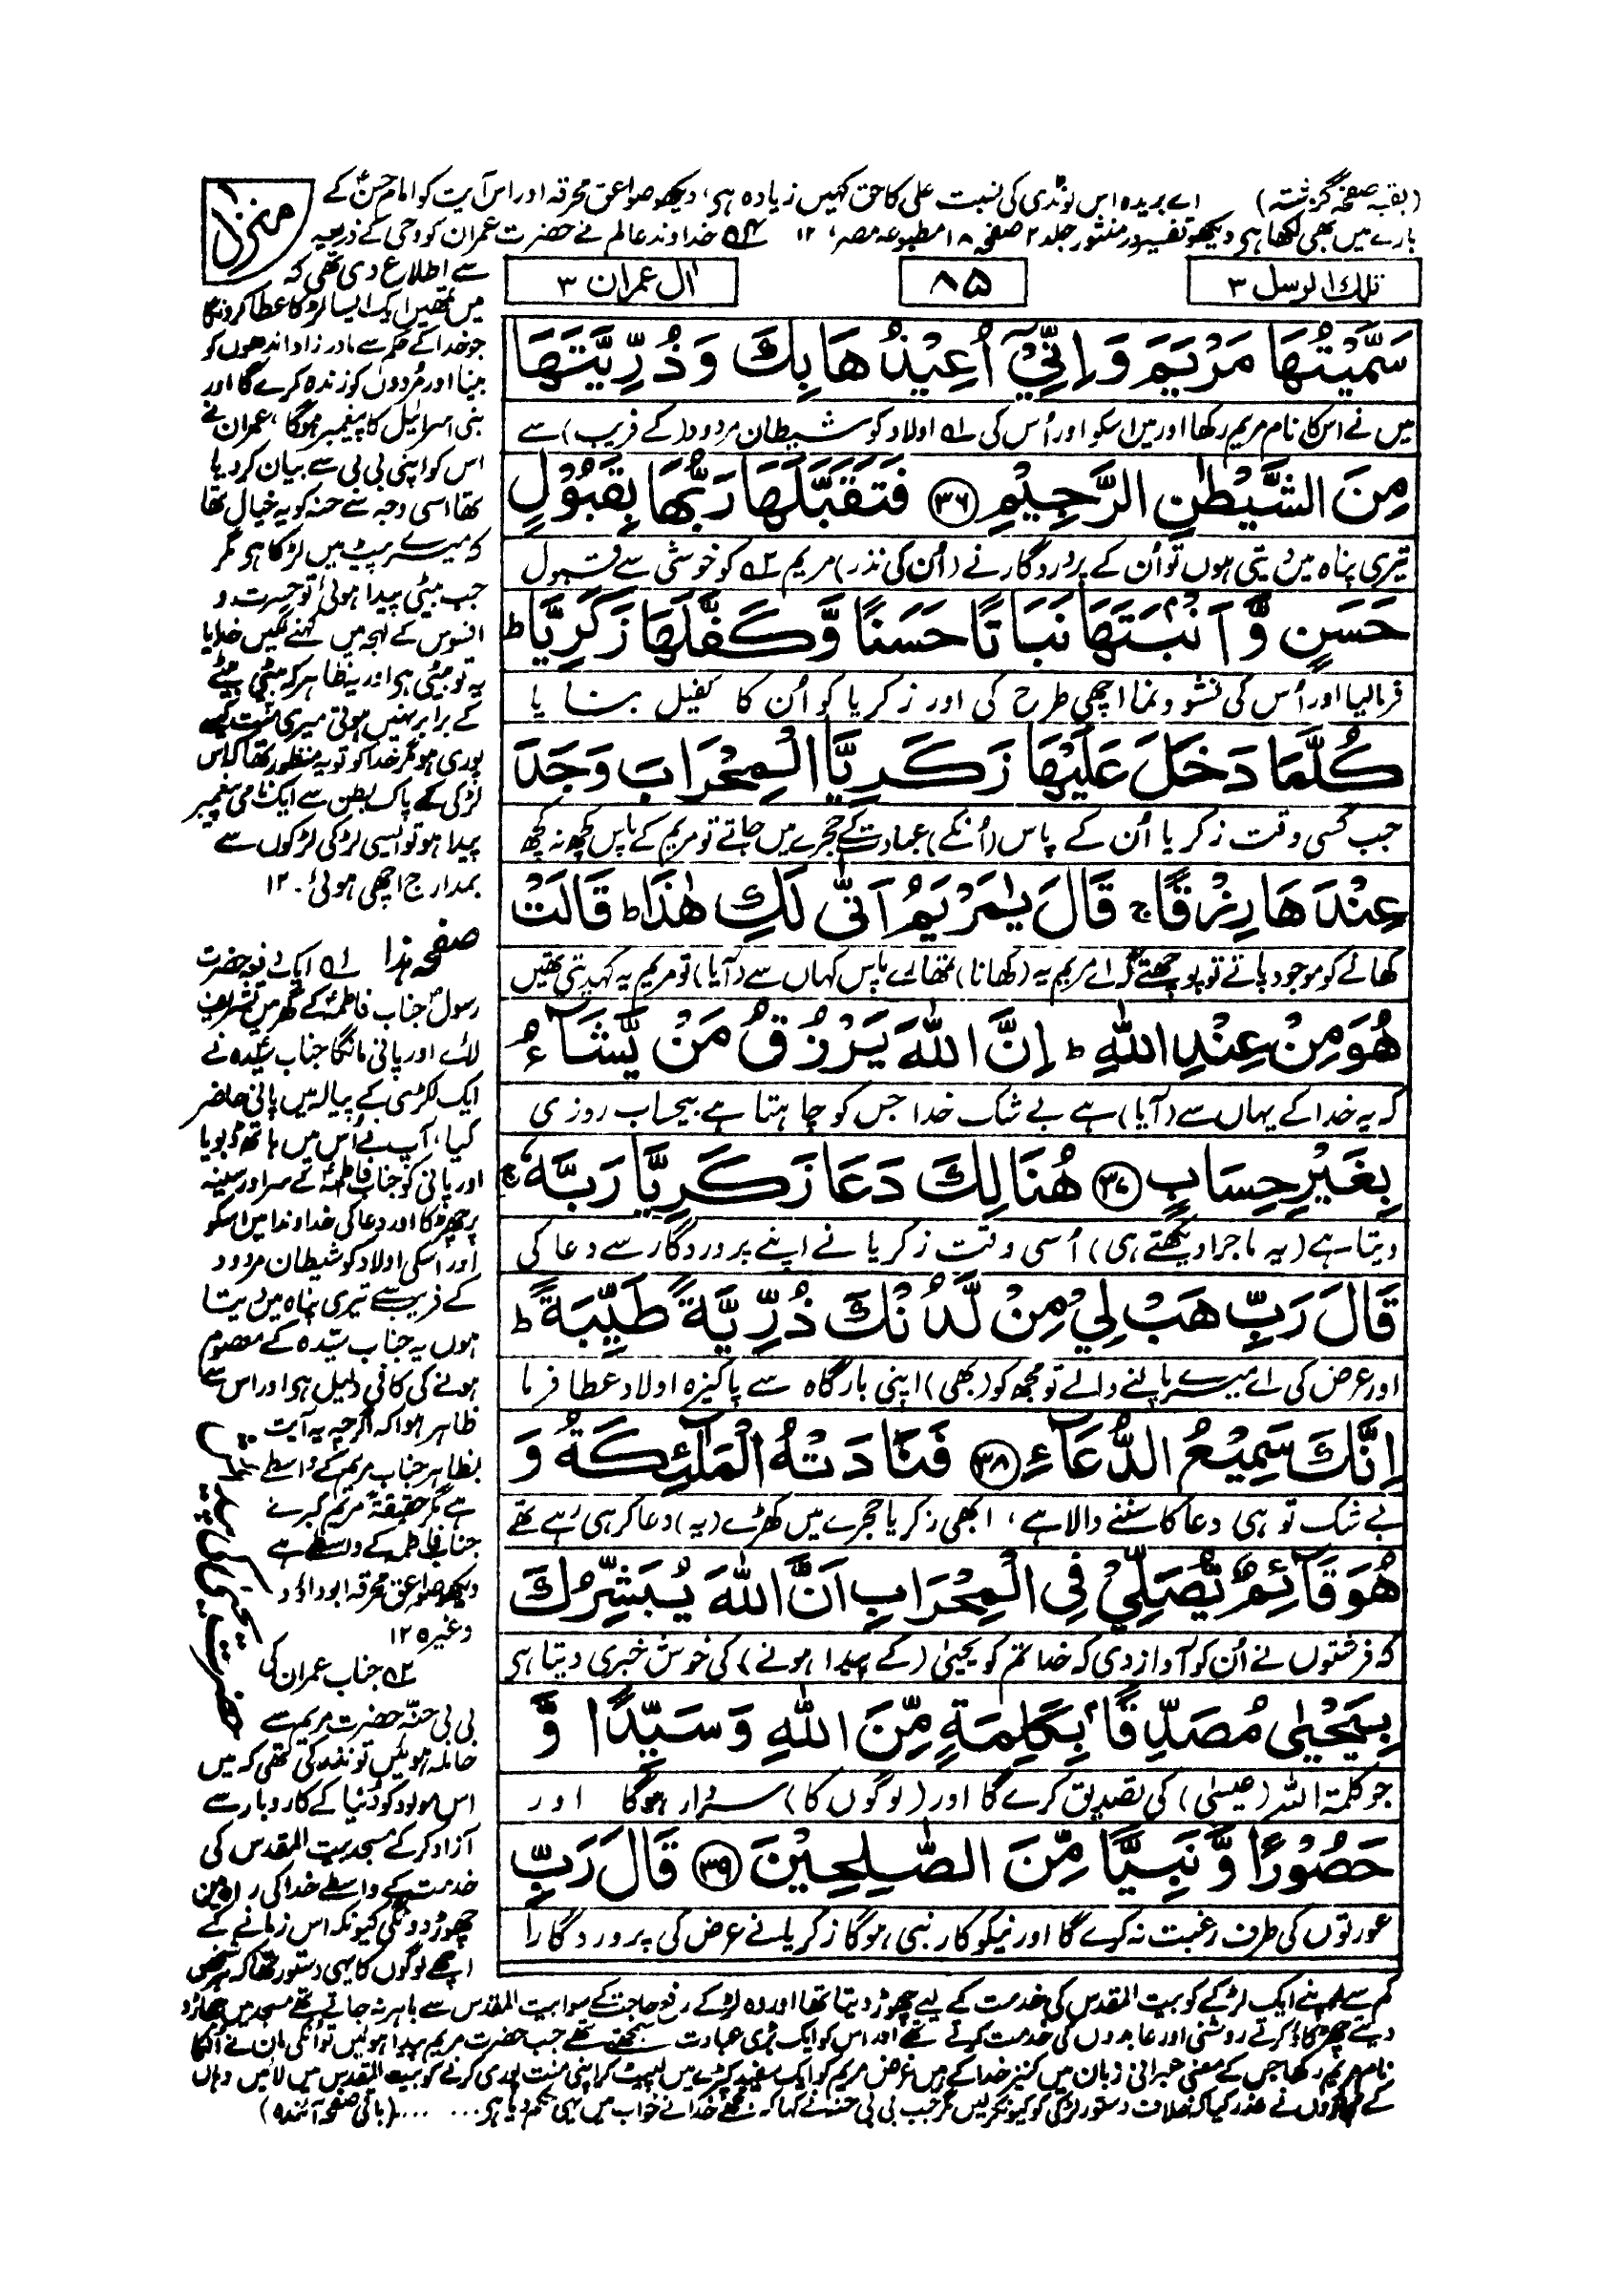 (بقیہ صفحہ گزشتہ) اے بریدہ اس لونڈی کی نسبت علی کا حق کہیں زیادہ ہی، دیکھو صواعق محرقہ اور اس آیت کو امام حسنؑ کے
بارے میں بھی لکھا ہی دیکھو تفسیر در منثور جلد ۲ صفحہ ۱۸ مطبوعہ مصر، ۱۲ خداوند عالم نے حضرت عمران کو وحی کے ذریعہ
منزل ۱
تلك الرسل ۳
۸۵
اٰل عمران ۳
سَمَّيْتُهَا مَرْيَمَ وَ اِنِّيْۤ اُعِيْذُهَا بِكَ وَ ذُرِّيَّتَهَا
میں نے اس کا نام مریم رکھا اور میں اسکو اور اُس کی ۱؎ اولاد کو شیطان مردود (کے فریب) سے
مِنَ الشَّيْطٰنِ الرَّجِيْمِ ۳۶ فَتَقَبَّلَهَا رَبُّهَا بِقَبُوْلٍ
تیری پناہ میں دیتی ہوں تو اُن کے پروردگار نے (اُن کی نذر) مریم ۲؎ کو خوشی سے قبول
حَسَنٍ وَّ اَنْۢبَتَهَا نَبَاتًا حَسَنًا وَّ كَفَّلَهَا زَكَرِيَّا ط
فرمالیا اور اُس کی نشو و نما اچھی طرح کی اور زکریا کو اُن کا کفیل بنا یا
كُلَّمَا دَخَلَ عَلَيْهَا زَكَرِيَّا الْمِحْرَابَ وَجَدَ
جب کسی وقت زکریا اُن کے پاس (اُنکے) عبادت کے حجرے میں جاتے تو مریم کے پاس کچھ نہ کچھ
عِنْدَهَا رِزْقًا ج قَالَ يٰمَرْيَمُ اَنّٰى لَكِ هٰذَا ط قَالَتْ
کھانے کو موجود پاتے تو پوچھتے کہ اے مریم یہ (کھانا) تمھارے پاس کہاں سے (آیا) تو مریم یہ کہدیتی تھیں
هُوَ مِنْ عِنْدِ اللّٰهِ ط اِنَّ اللّٰهَ يَرْزُقُ مَنْ يَّشَآءُ
کہ یہ خدا کے یہاں سے (آیا) ہے بے شک خدا جس کو چاہتا ہے بیحساب روزی
بِغَيْرِ حِسَابٍ ۳۷ هُنَالِكَ دَعَا زَكَرِيَّا رَبَّهٗ ج
دیتا ہے (یہ ماجرا دیکھتے ہی) اُسی وقت زکریا نے اپنے پروردگار سے دعا کی
قَالَ رَبِّ هَبْ لِيْ مِنْ لَّدُنْكَ ذُرِّيَّةً طَيِّبَةً ط
اور عرض کی اے میرے پالنے والے تو مجھ کو (بھی) اپنی بارگاہ سے پاکیزہ اولاد عطا فرما
اِنَّكَ سَمِيْعُ الدُّعَآءِ ۳۸ فَنَادَتْهُ الْمَلٰٓئِكَةُ وَ
بے شک تو ہی دعا کا سننے والا ہے، ابھی زکریا حجرے میں کھڑے (یہ) دعا کر ہی رہے تھے
هُوَ قَآئِمٌ يُّصَلِّيْ فِي الْمِحْرَابِ اَنَّ اللّٰهَ يُبَشِّرُكَ
کہ فرشتوں نے اُن کو آواز دی کہ خدا تم کو یحییٰ (کے پیدا ہونے) کی خوش خبری دیتا ہی
بِيَحْيٰى مُصَدِّقًۢا بِكَلِمَةٍ مِّنَ اللّٰهِ وَ سَيِّدًا وَّ
جو کلمۃ اللہ (عیسیٰ) کی تصدیق کرے گا اور (لوگوں کا) سردار ہوگا اور
حَصُوْرًا وَّ نَبِيًّا مِّنَ الصّٰلِحِيْنَ ۳۹ قَالَ رَبِّ
عورتوں کی طرف رغبت نہ کرے گا اور نیکو کار نبی ہوگا زکریا نے عرض کی پروردگارا
سے اطلاع دی تھی کہ
میں تمھیں ایک ایسا لڑکا عطا کرونگا
جو خدا کے حکم سے مادر زاد اندھوں کو
بینا اور مُردوں کو زندہ کرے گا اور
بنی اسرائیل کا پیغمبر ہوگا، عمران نے
اس کو اپنی بی بی سے بیان کر دیا
تھا اسی وجہ سے حنہ کو یہ خیال تھا
کہ میرے پیٹ میں لڑکا ہو مگر
جب بیٹی پیدا ہوئی تو حسرت و
افسوس کے لہجہ میں کہنے لگیں خدایا
یہ تو بیٹی ہی اور یہ ظاہر کہ بیٹی بیٹے
کے برابر نہیں ہوتی میری منت کیسے
پوری ہو مگر خدا کو تو یہ منظور تھا کہ اس
لڑکی کے پاک بطن سے ایک نامی پیغمبر
پیدا ہو تو ایسی لڑکی لڑکوں سے
بمدارج اچھی ہوئی۔ ۱۲
صفحہ ہٰذا ۱؎ ایک دفعہ حضرت
رسولؐ جناب فاطمہؑ کے گھر میں تشریف
لائے اور پانی مانگا جناب سیدہ نے
ایک لکڑی کے پیالہ میں پانی حاضر
کیا، آپ نے اُس میں ہاتھ ڈبویا
اور پانی کو جناب فاطمہؑ کے سر اور سینہ
پر چھڑکا اور دعا کی خداوندا میں اسکو
اور اسکی اولاد کو شیطان مردود
کے فریب سے تیری پناہ میں دیتا
ہوں یہ جناب سیّدہ کے معصوم
ہونے کی کافی دلیل ہی اور اس سے
ظاہر ہوا کہ اگرچہ یہ آیت
بظاہر جناب مریم کے واسطے
ہے مگر حقیقۃً مریم کبریٰ
جناب فاطمہ کے واسطے ہے
دیکھو صواعق محرقہ ابو داؤد
وغیرہ ۱۲
۲؎ جناب عمران کی
بی بی حنّہ حضرت مریم سے
حاملہ ہوئیں تو نذر کی تھی کہ میں
اس مولود کو دُنیا کے کاروبار سے
آزاد کر کے مسجد بیت المقدس کی
خدمت کے واسطے خدا کی راہ میں
چھوڑ دونگی کیونکہ اس زمانے کے
اچھے لوگوں کا یہی دستور تھا کہ ہر شخص
کم سے کم اپنے ایک لڑکے کو بیت المقدس کی خدمت کے لیے چھوڑ دیتا تھا اور وہ لڑکے رفع حاجت کے سوا بیت المقدس سے باہر نہ جاتے تھے مسجد میں جھاڑو
دیتے چھڑکاؤ کرتے روشنی اور عابدوں کی خدمت کرتے تھے اور اس کو ایک بڑی عبادت سمجھتے تھے جب حضرت مریم پیدا ہوئیں تو اُنکی ماں نے اُنکا
نام مریم رکھا جس کے معنی عبرانی زبان میں کنیز خدا کے ہیں غرض مریم کو ایک سفید کپڑے میں لپیٹ کر اپنی منت پوری کرنے کو بیت المقدس میں لائیں وہاں
کے نے عذر کیا کہ خلاف دستور لڑکی کو کیونکر لیں مگر جب بی بی حنہ نے کہا کہ مجھے خدا نے خواب میں یہی حکم دیا ہی ... (باقی صفحہ آئندہ)